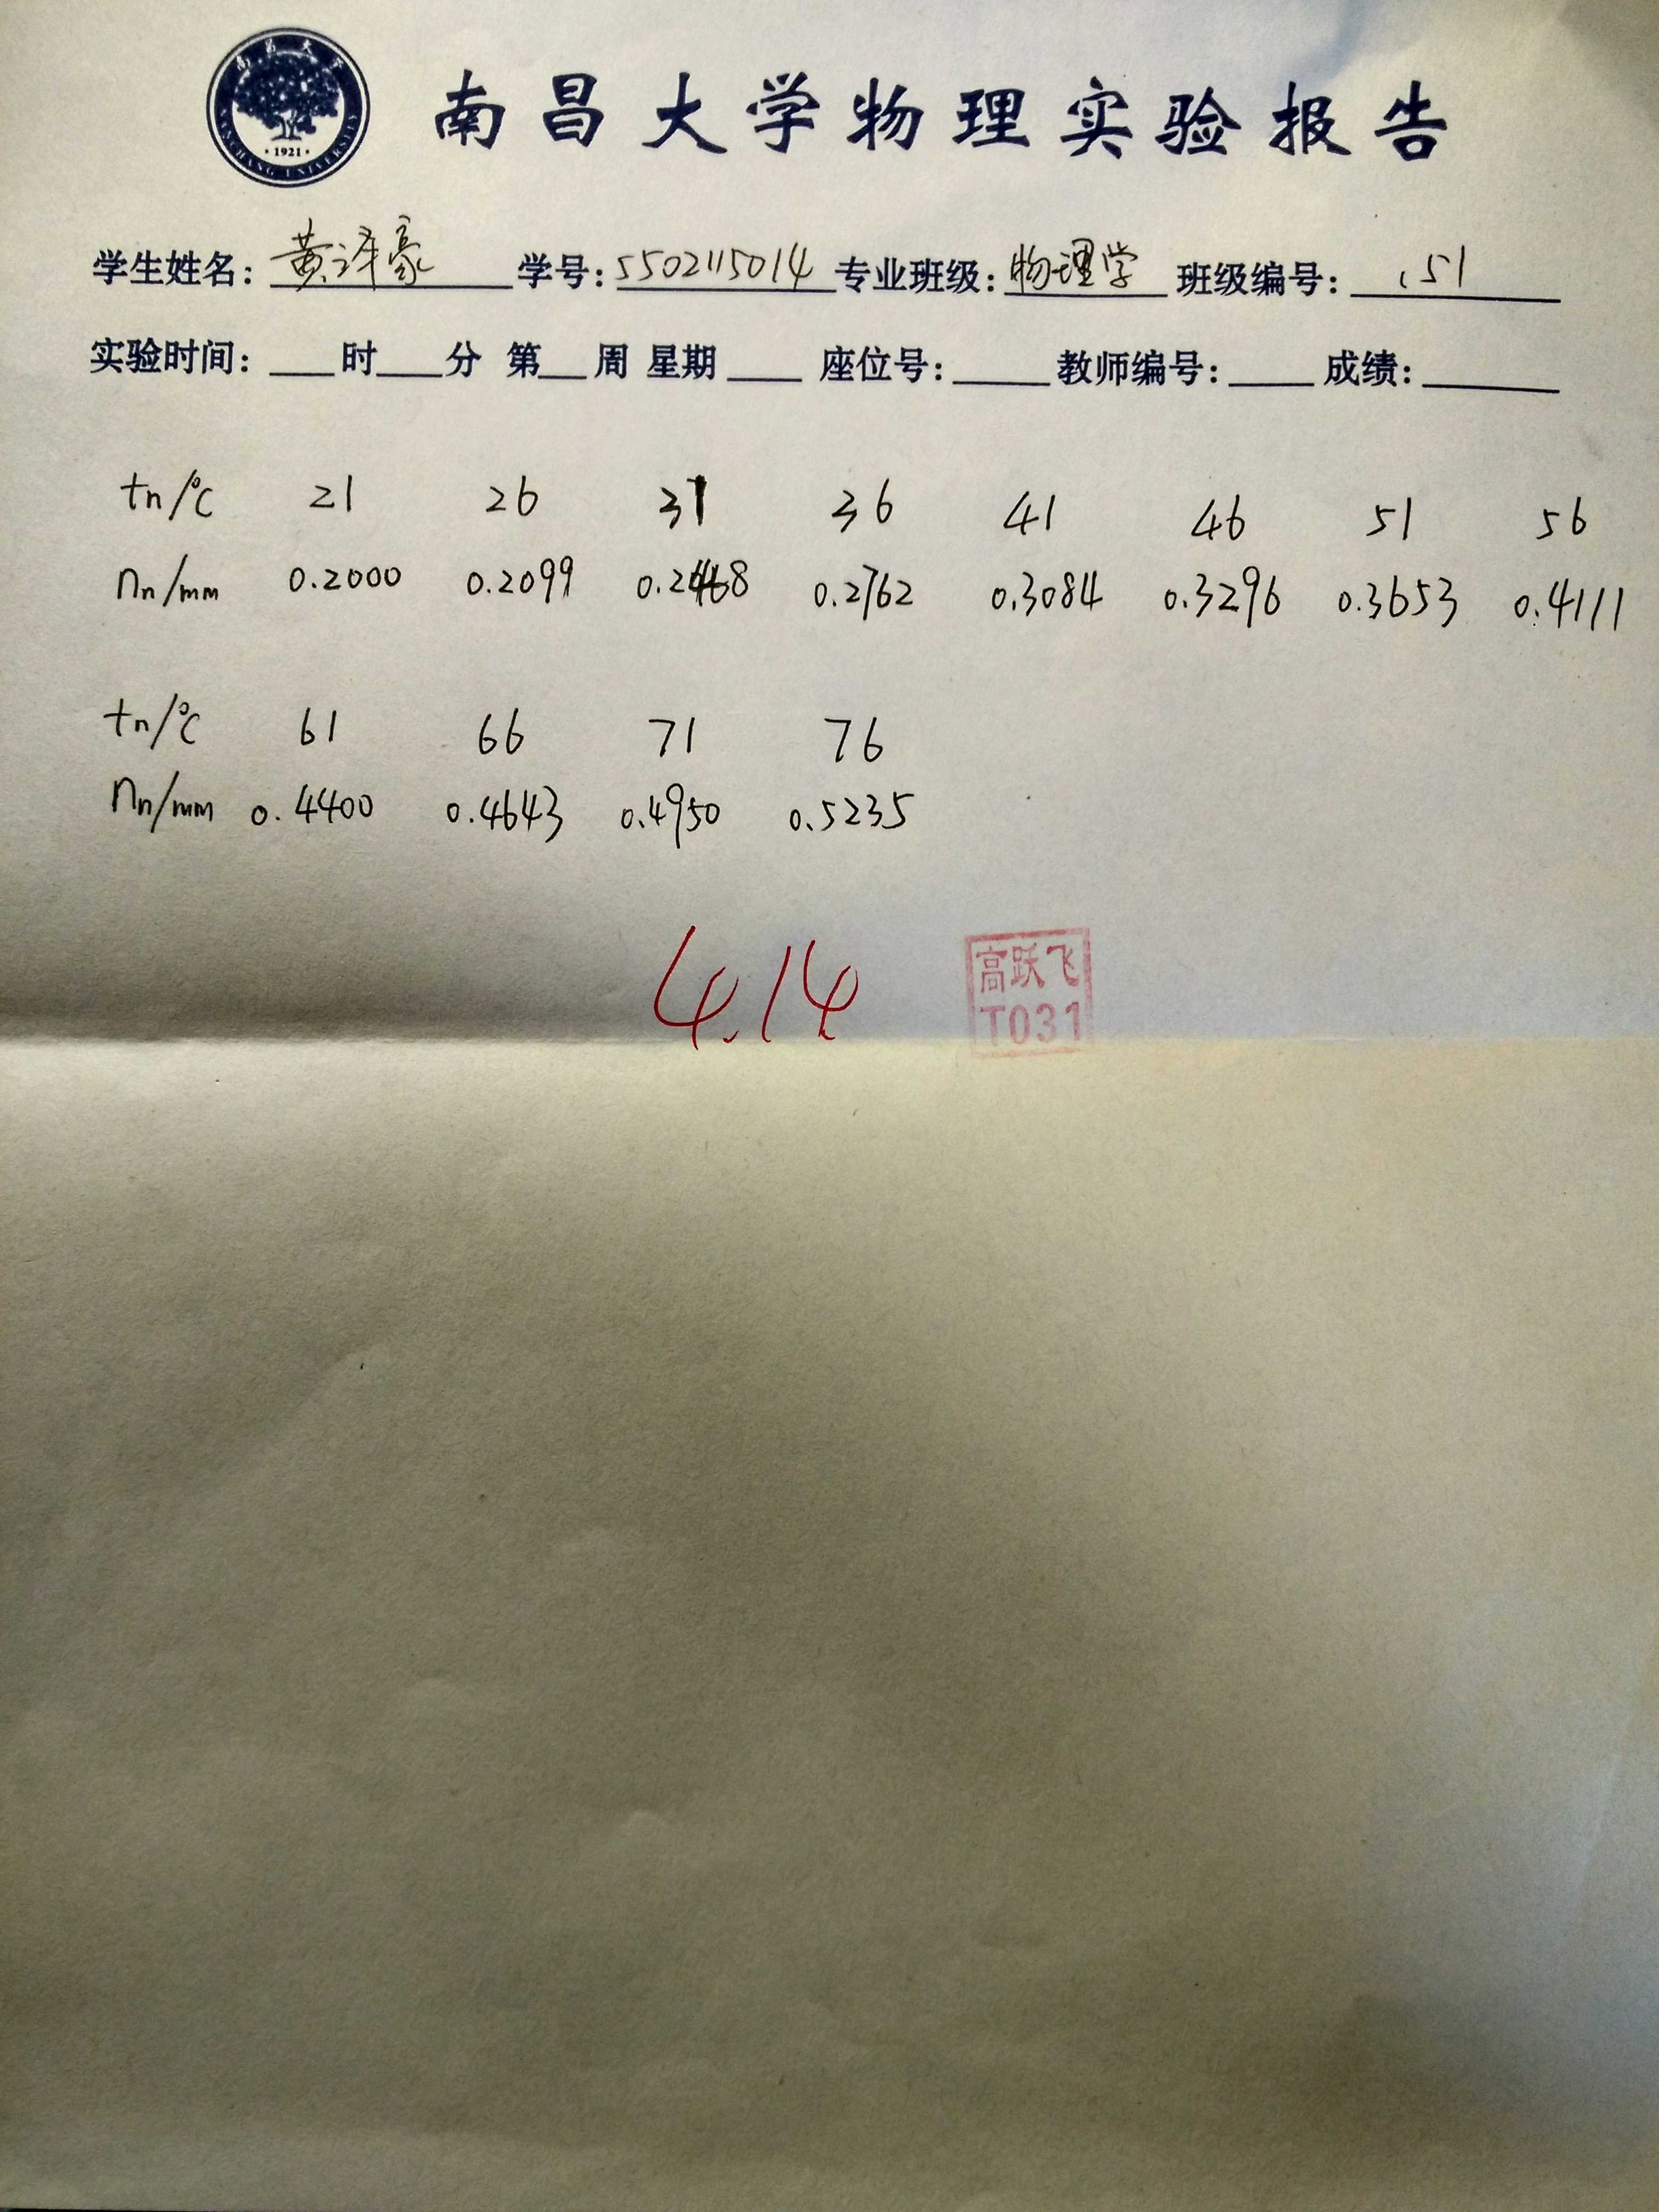 南昌大学
NANCHANG UNIVERSITY
·1921·
南昌大学物理实验报告
学生姓名：黄泽豪 学号：5502115014 专业班级：物理学 班级编号：151
实验时间：___时___分 第__周 星期___ 座位号：____ 教师编号：____ 成绩：____
tn/℃ 21 26 31 36 41 46 51 56
nn/mm 0.2000 0.2099 0.2468 0.2762 0.3084 0.3296 0.3653 0.4111
tn/℃ 61 66 71 76
nn/mm 0.4400 0.4643 0.4950 0.5235
4.14
高跃飞
T031